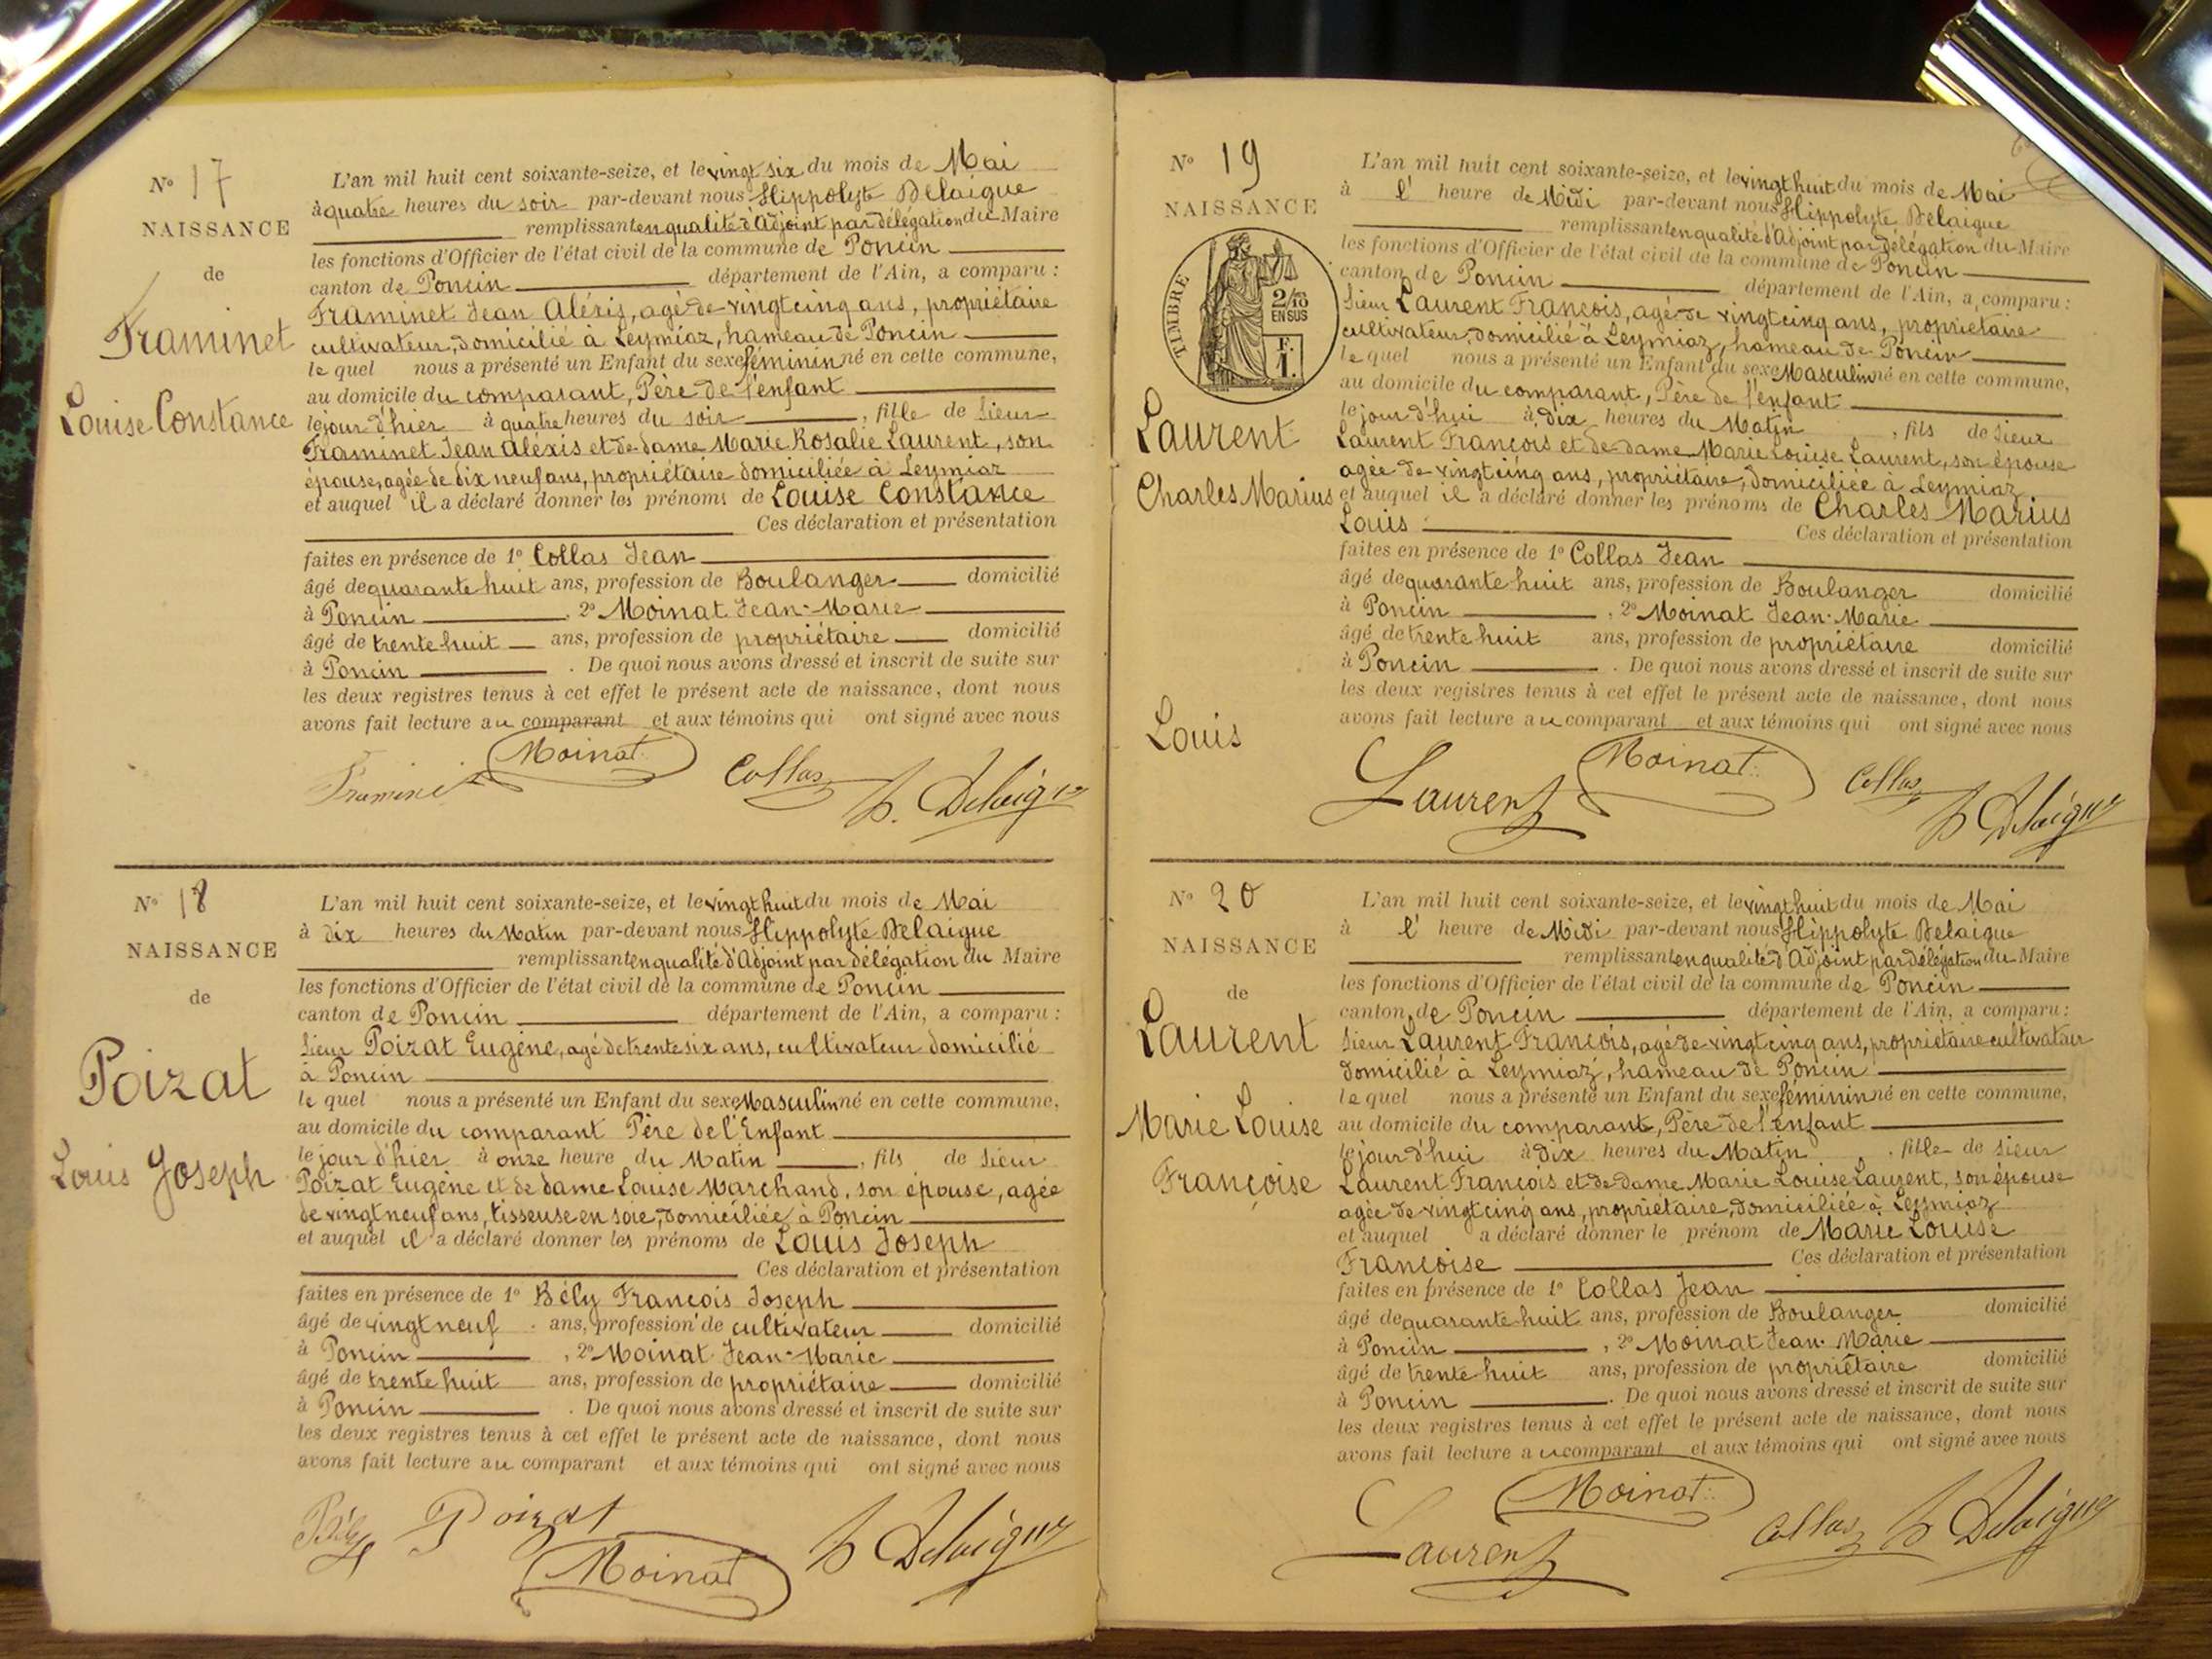 N° 17
NAISSANCE
de
Framinet
Louise Constance
L'an mil huit cent soixante-seize, et le vingt six du mois de Mai
à quatre heures du soir par-devant nous Hippolyte Delaigue
remplissant en qualité d'Adjoint par délégation du Maire
les fonctions d'Officier de l'état civil de la commune de Poncin
canton de Poncin département de l'Ain, a comparu :
Framinet Jean Aléxis, agé de vingt cinq ans, propriétaire
cultivateur, domicilié à Leymiaz, hameau de Poncin
le quel nous a présenté un Enfant du sexe féminin né en cette commune,
au domicile du comparant, Père de l'enfant
le jour d'hier à quatre heures du soir , fille de Sieur
Framinet Jean Aléxis et de dame Marie Rosalie Laurent, son
épouse, agée de dix neuf ans, propriétaire domiciliée à Leymiaz
et auquel il a déclaré donner les prénoms de Louise Constance
Ces déclaration et présentation
faites en présence de 1° Collas Jean
âgé de quarante huit ans, profession de Boulanger domicilié
à Poncin , 2° Moinat Jean-Marie
âgé de trente huit ans, profession de propriétaire domicilié
à Poncin . De quoi nous avons dressé et inscrit de suite sur
les deux registres tenus à cet effet le présent acte de naissance, dont nous
avons fait lecture au comparant et aux témoins qui ont signé avec nous
Framinet Moinat Collas h. Delaigue
N° 18
NAISSANCE
de
Poizat
Louis Joseph
L'an mil huit cent soixante-seize, et le vingt huit du mois de Mai
à dix heures du Matin par-devant nous Hippolyte Delaigue
remplissant en qualité d'Adjoint par délégation du Maire
les fonctions d'Officier de l'état civil de la commune de Poncin
canton de Poncin département de l'Ain, a comparu :
Sieur Poizat Eugène, agé de trente six ans, cultivateur domicilié
à Poncin
le quel nous a présenté un Enfant du sexe Masculin né en cette commune,
au domicile du comparant Père de l'Enfant
le jour d'hier à onze heure du Matin , fils de Sieur
Poizat Eugène et de dame Louise Marchand, son épouse, agée
de vingt neuf ans, tisseuse en soie, domiciliée à Poncin
et auquel il a déclaré donner les prénoms de Louis Joseph
Ces déclaration et présentation
faites en présence de 1° Bély François Joseph
âgé de vingt neuf ans, profession de cultivateur domicilié
à Poncin , 2° Moinat Jean-Marie
âgé de trente huit ans, profession de propriétaire domicilié
à Poncin . De quoi nous avons dressé et inscrit de suite sur
les deux registres tenus à cet effet le présent acte de naissance, dont nous
avons fait lecture au comparant et aux témoins qui ont signé avec nous
Bély Poizat Moinat h Delaigue
N° 19
NAISSANCE
TIMBRE
2/10
EN SUS
F.
1.
Laurent
Charles Marius
Louis
L'an mil huit cent soixante-seize, et le vingt huit du mois de Mai
à l' heure de Midi par-devant nous Hippolyte Delaigue
remplissant en qualité d'Adjoint par délégation du Maire
les fonctions d'Officier de l'état civil de la commune de Poncin
canton de Poncin département de l'Ain, a comparu :
Sieur Laurent François, agé de vingt cinq ans, propriétaire
cultivateur, domicilié à Leymiaz, hameau de Poncin
le quel nous a présenté un Enfant du sexe Masculin né en cette commune,
au domicile du comparant, Père de l'enfant
le jour d'hui à dix heures du Matin , fils de Sieur
Laurent François et de dame Marie Louise Laurent, son épouse
agée de vingt cinq ans, propriétaire, domiciliée à Leymiaz
et auquel il a déclaré donner les prénoms de Charles Marius
Louis Ces déclaration et présentation
faites en présence de 1° Collas Jean
âgé de quarante huit ans, profession de Boulanger domicilié
à Poncin , 2° Moinat Jean-Marie
âgé de trente huit ans, profession de propriétaire domicilié
à Poncin . De quoi nous avons dressé et inscrit de suite sur
les deux registres tenus à cet effet le présent acte de naissance, dont nous
avons fait lecture au comparant et aux témoins qui ont signé avec nous
Laurent Moinat Collas h Delaigue
N° 20
NAISSANCE
de
Laurent
Marie Louise
Françoise
L'an mil huit cent soixante-seize, et le vingt huit du mois de Mai
à l' heure de Midi par-devant nous Hippolyte Delaigue
remplissant en qualité d'Adjoint par délégation du Maire
les fonctions d'Officier de l'état civil de la commune de Poncin
canton de Poncin département de l'Ain, a comparu :
Sieur Laurent François, agé de vingt cinq ans, propriétaire cultivateur
domicilié à Leymiaz, hameau de Poncin
le quel nous a présenté un Enfant du sexe féminin né en cette commune,
au domicile du comparant, Père de l'enfant
le jour d'hui à dix heures du Matin , fille de Sieur
Laurent François et de dame Marie Louise Laurent, son épouse
agée de vingt cinq ans, propriétaire, domiciliée à Leymiaz
et auquel a déclaré donner le prénom de Marie Louise
Françoise Ces déclaration et présentation
faites en présence de 1° Collas Jean
âgé de quarante huit ans, profession de Boulanger domicilié
à Poncin , 2° Moinat Jean-Marie
âgé de trente huit ans, profession de propriétaire domicilié
à Poncin . De quoi nous avons dressé et inscrit de suite sur
les deux registres tenus à cet effet le présent acte de naissance, dont nous
avons fait lecture au comparant et aux témoins qui ont signé avec nous
Laurent Moinat Collas h Delaigue